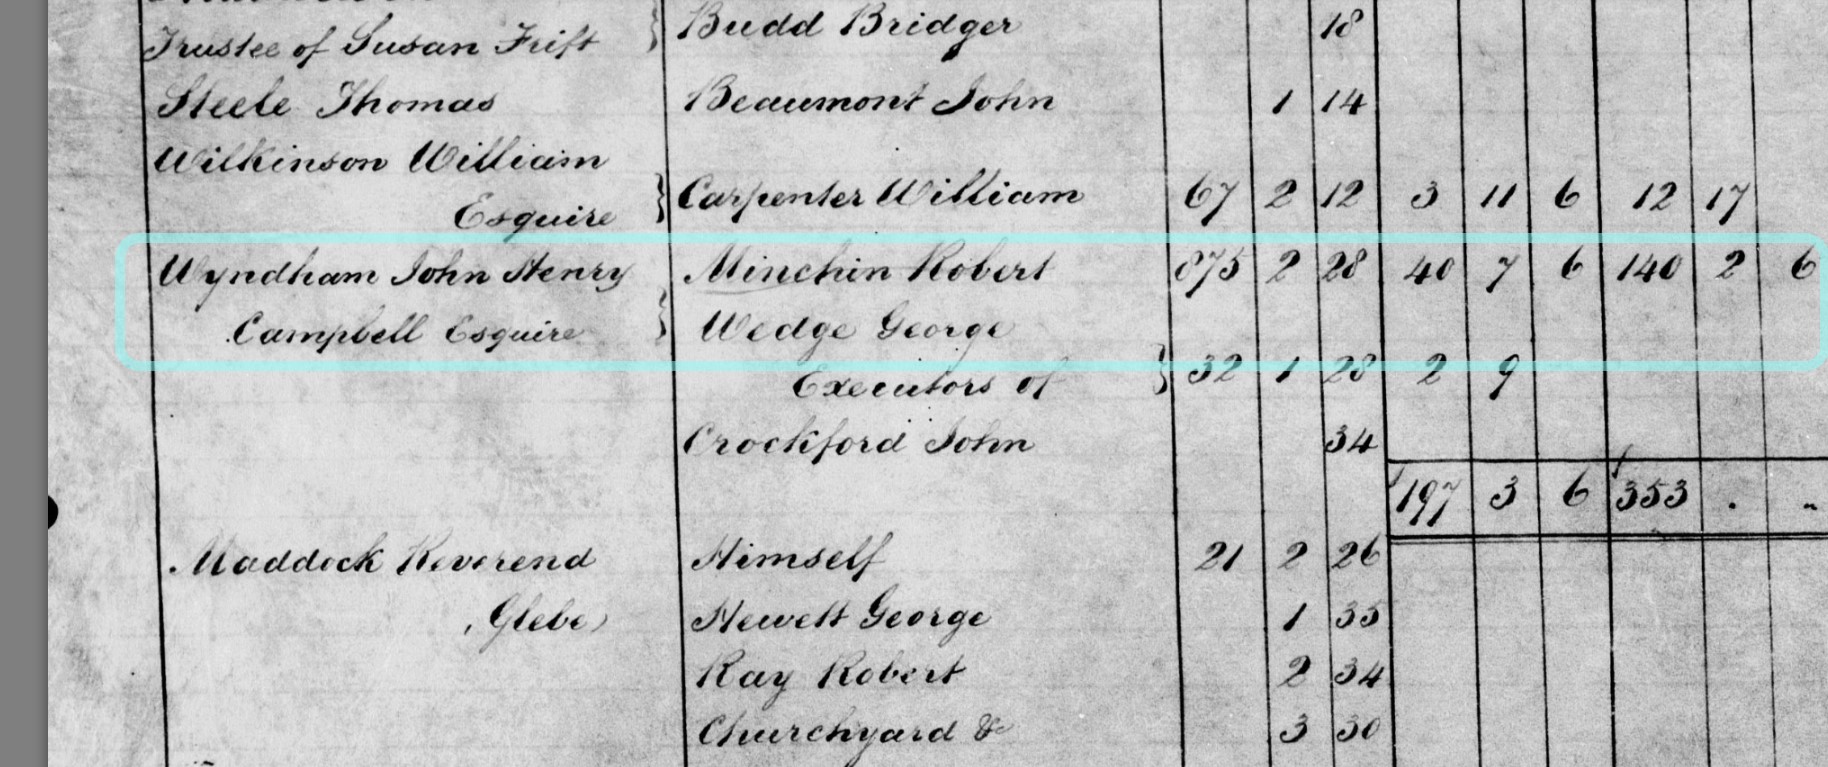 Trustee of Susan Frift } Budd Bridger 18
Steele Thomas Beaumont John 1 14
Wilkinson William
Esquire } Carpenter William 67 2 12 3 11 6 12 17
Wyndham John Henry Minchin Robert 875 2 28 40 7 6 140 2 6
Campbell Esquire } Wedge George
Executors of } 32 1 28 2 9
Crockford John 34
197 3 6 353 . ..
Maddock Reverend Himself 21 2 26
(Glebe) Hewett George 1 35
Ray Robert 2 34
Churchyard &c 3 30